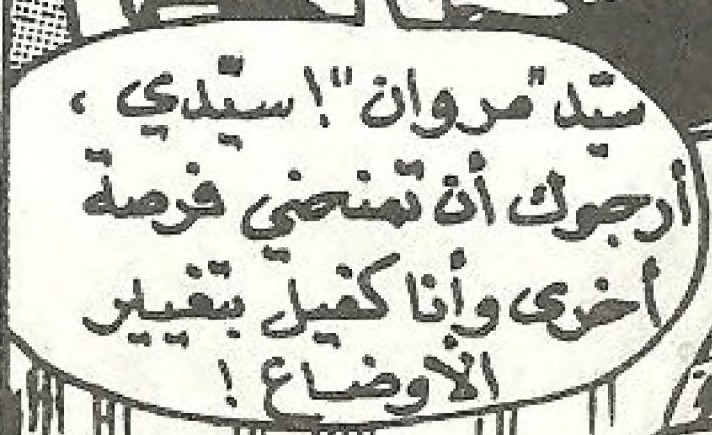 سيّد "مروان"! سيّدي ،
أرجوك أن تمنحني فرصة
أخرى وأنا كفيل بتغيير
الأوضاع !